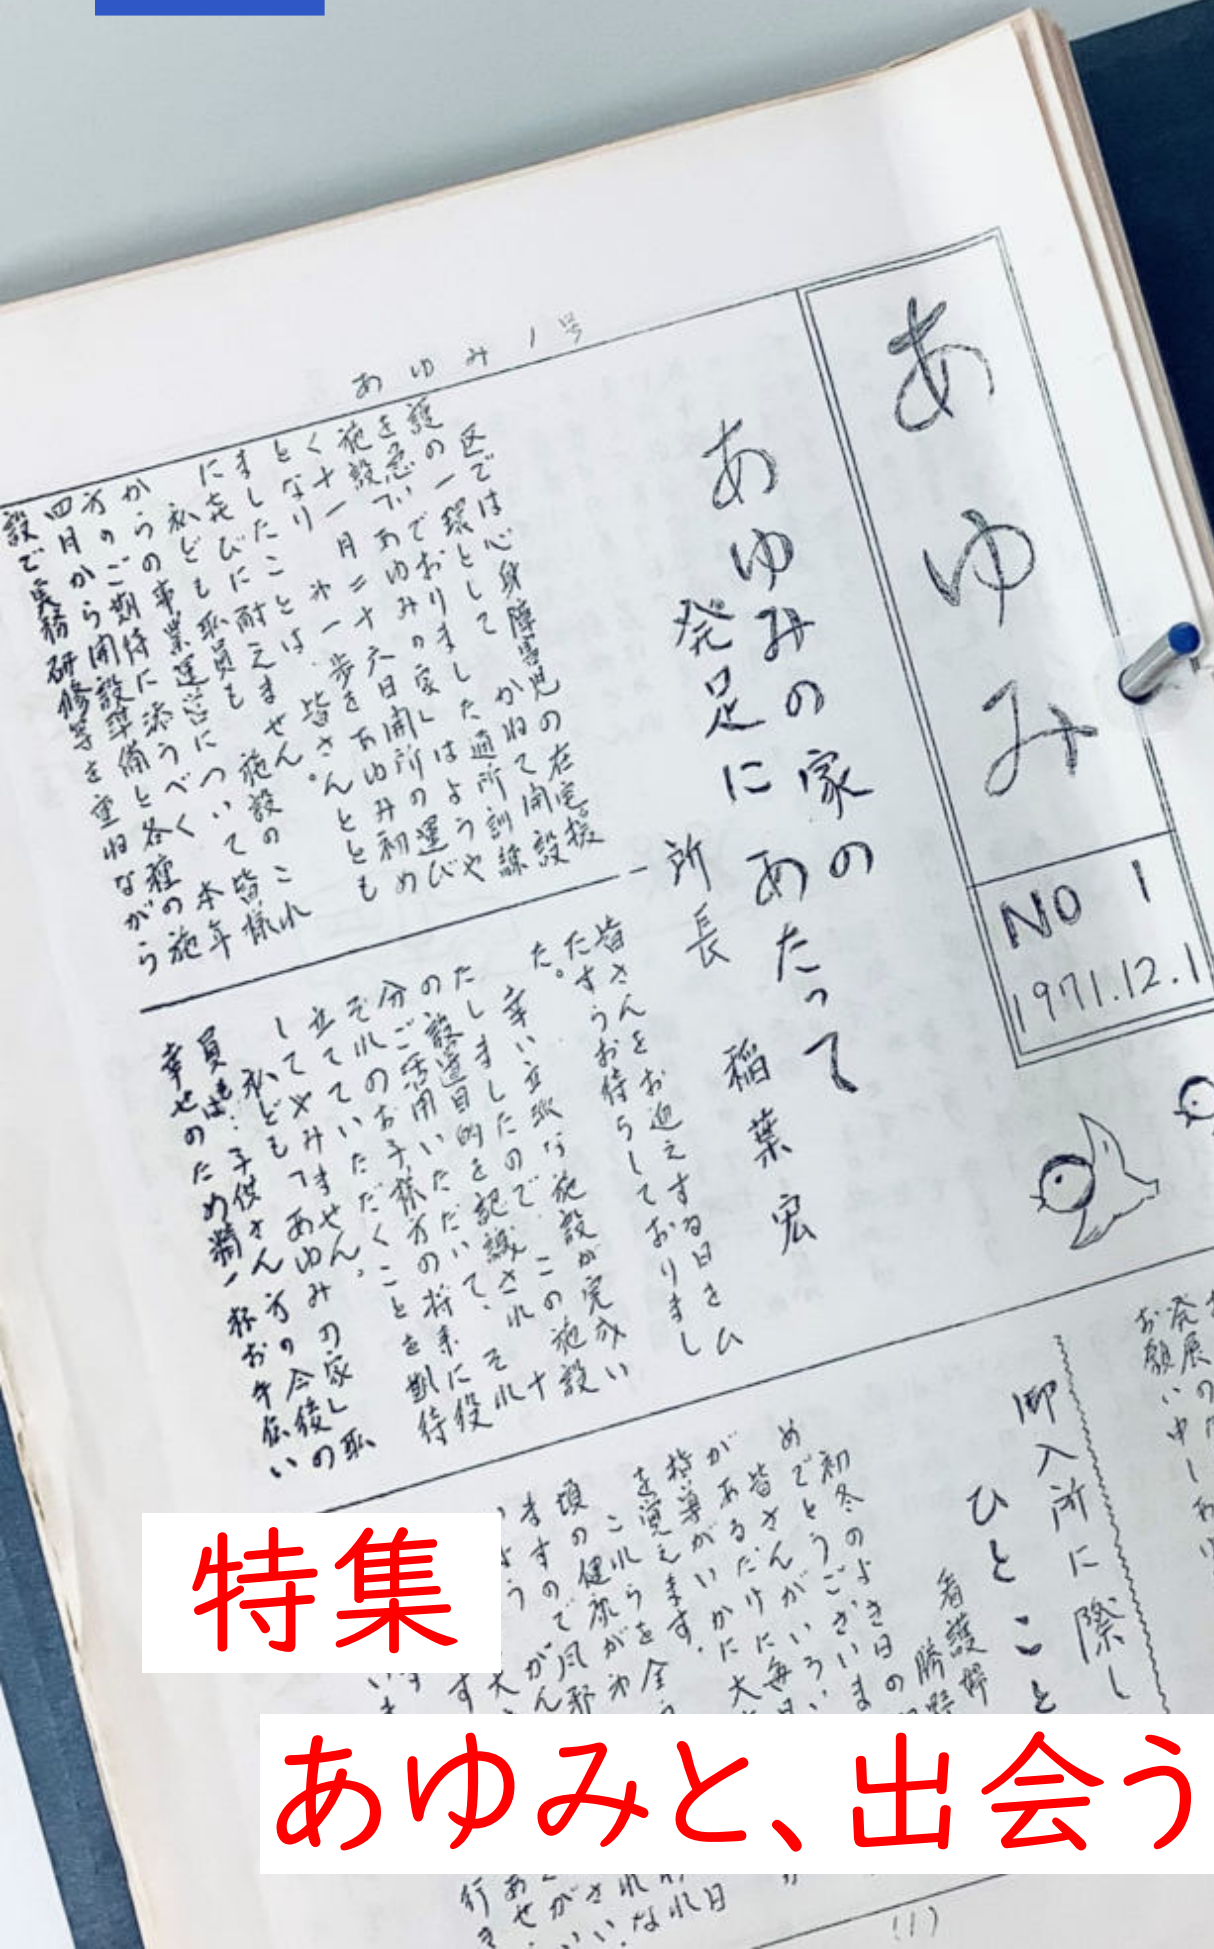 あゆみ1号
あゆみ
NO 1
1971.12.1
あゆみの家の
発足にあたって
所長 稲葉宏
区では心身障害児の在宅援
護の一環として かねて開設
を急いでおりました通所訓練
施設「あゆみの家」はようや
く十一月二十六日開所の運び
となり 第一歩をあゆみ初め
ましたことは、皆さんととも
に喜びに耐えません。
私ども職員も 施設のこれ
からの事業運営について皆様
方のご期待に添うべく 本年
四月から開設準備と各種の施
設で実務研修等を重ねながら
皆さんをお迎えする日をひ
たすらお待ちしておりまし
た。
幸い立派な施設が完成い
たしましたので、この施設
の設置目的を認識され 十
分ご活用いただいて、それ
ぞれのお子様方の将来に役
立てていただくことを期待
してやみません。
私ども「あゆみの家」の職
員は、子供さん方の今後の
幸せのため精一杯お手伝い
発展の
お願い申しあ
御入所に際し
ひとこと
看護婦
初冬のよき日の
めでとうございま
皆さんがいろい
があるだけに毎日
指導がいかに大
を覚えます。
これらを全う
頃の健康が
ますので風邪
(1)
特集
あゆみと、出会う